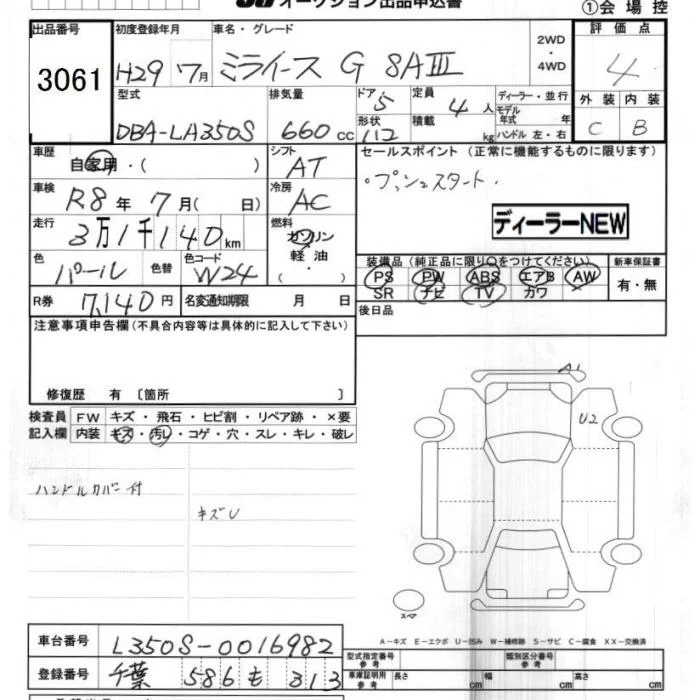 オークション出品申込書
①会場控
出品番号 初度登録年月 車名・グレード 評価点
3061 H29 7月 ミライース G SAⅢ 2WD・4WD 4
型式 排気量 ドア 定員 ディーラー・並行 外装 内装
DBA-LA350S 660cc 5 形状 112 4人 積載 kg モデル年式 年 ハンドル 左・右 C B
車歴 自家用・( ) シフト AT セールスポイント (正常に機能するものに限ります)
車検 R8年 7月( 日) 冷房 AC ・プッシュスタート.
走行 3万1千140km 燃料 ガソリン 軽油・( ) ディーラーNEW
色 パール 色替 色コード W24 装備品(純正品に限り○をつけてください) 新車保証書
PS PW ABS エアB AW 有・無
SR ナビ TV カワ
R券 7,140円 名変通知期限 月 日 後日品
注意事項申告欄(不具合内容等は具体的に記入して下さい)
修復歴 有 〔箇所 〕
検査員 FW キズ・飛石・ヒビ割・リペア跡・×要
記入欄 内装 キズ・汚し・コゲ・穴・スレ・キレ・破レ
A1
U2
ハンドルカバー付
キズU
スペア
A-キズ E-エクボ U-凹み W-補修跡 S-サビ C-腐食 XX-交換済
車台番号 LA350S-0016982 型式指定番号 参考 類別区分番号 参考
登録番号 千葉 586 も 313 車庫証明用 参考 長さ cm 幅 cm 高さ cm